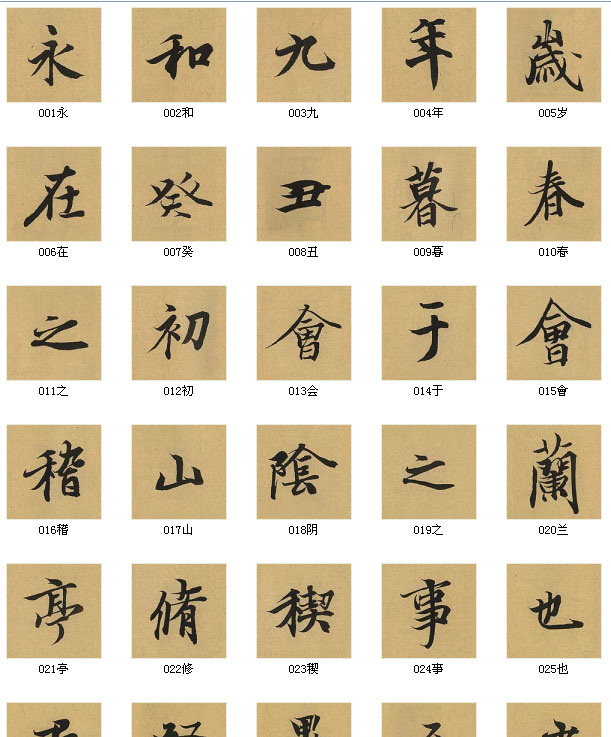 永 和 九 年 歲
001永 002和 003九 004年 005岁
在 癸 丑 暮 春
006在 007癸 008丑 009暮 010春
之 初 會 于 會
011之 012初 013会 014于 015會
稽 山 陰 之 蘭
016稽 017山 018阴 019之 020兰
亭 脩 稧 事 也
021亭 022修 023稧 024事 025也